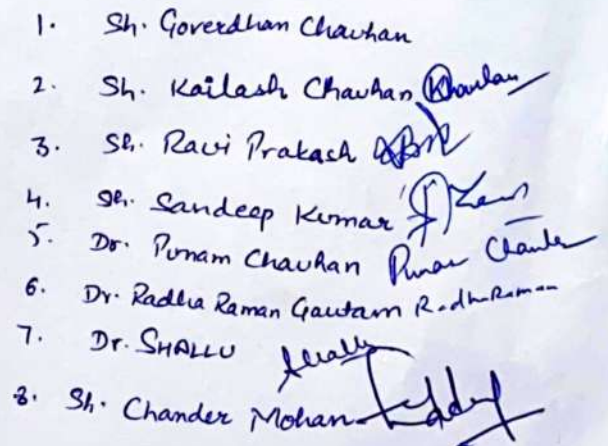 1. Sh. Goverdhan Chauhan
2. Sh. Kailash Chauhan
3. Sh. Ravi Prakash
4. Sh. Sandeep Kumar
5. Dr. Punam Chauhan
6. Dr. Radha Raman Gautam RadhaRaman
7. Dr. SHALLU Shallu
8. Sh. Chander Mohan